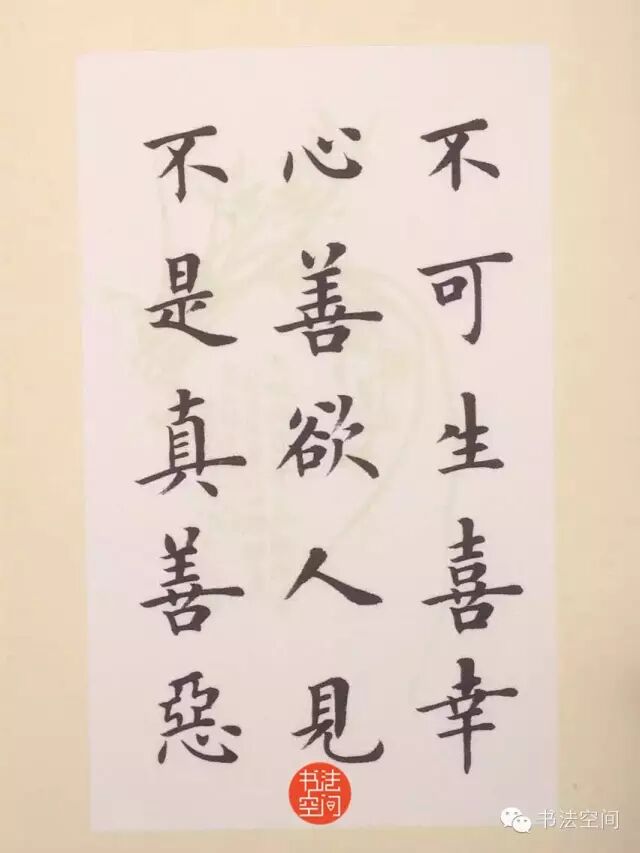 不可生喜幸
心善欲人見
不是真善惡
书法
空间
书法空间